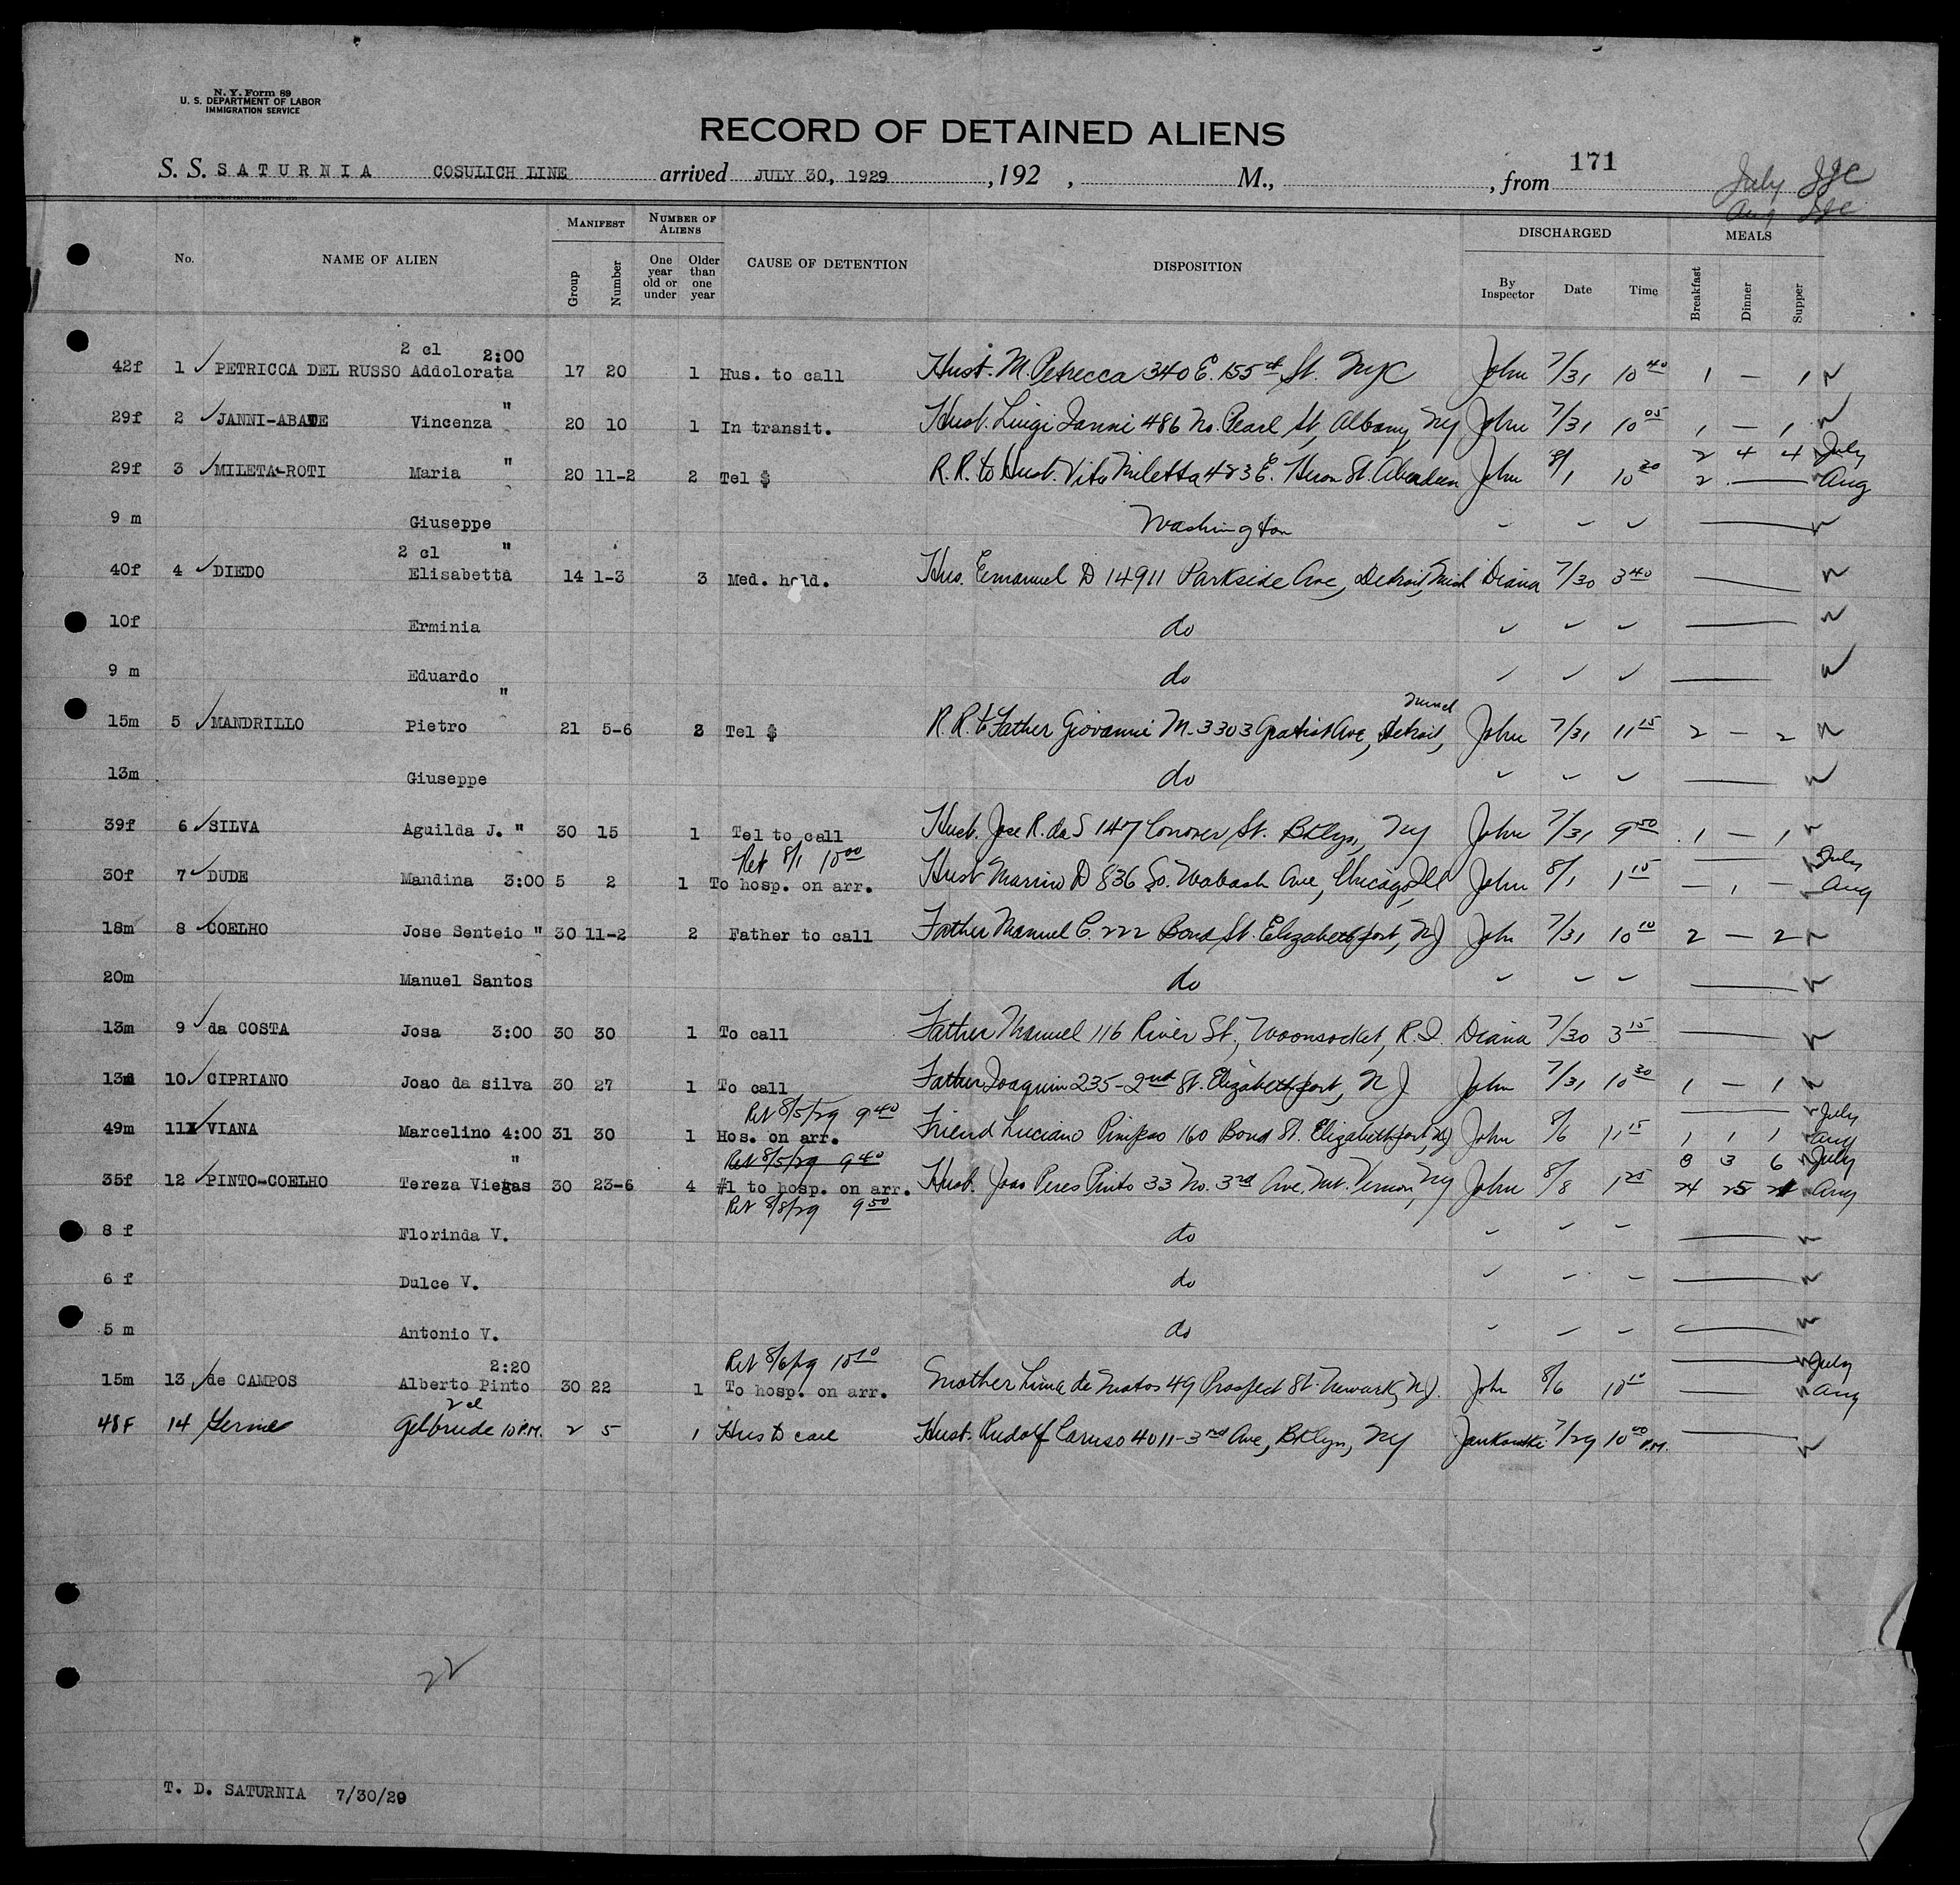 N. Y. Form 89
U. S. DEPARTMENT OF LABOR
IMMIGRATION SERVICE
RECORD OF DETAINED ALIENS
S. S. SATURNIA COSULICH LINE arrived JULY 30, 1929 , 192 , M., , from 171
July JJC
Aug JJC
No. NAME OF ALIEN MANIFEST Group Number NUMBER OF ALIENS One year old or under Older than one year CAUSE OF DETENTION DISPOSITION DISCHARGED By Inspector Date Time MEALS Breakfast Dinner Supper
2 cl 2:00
42f 1 ✓ PETRICCA DEL RUSSO Addolorata 17 20 1 Hus. to call Hust. M. Petrecca 340 E. 155th St. NYC John 7/31 10 40 1 — 1
29f 2 ✓ JANNI-ABATE Vincenza " 20 10 1 In transit. Hust. Luigi Ianni 486 No. Pearl St, Albany, NY John 7/31 10 05 1 — 1
2 4 4 July
29f 3 ✓ MILETA-ROTI Maria " 20 11-2 2 Tel $ R.R. to Hust. Vito Miletta 423 E. Heron St. Aberdeen John 8/1 10 30 2 — Aug
9 m Giuseppe Washington
2 cl "
40f 4 ✓ DIEDO Elisabetta 14 1-3 3 Med. hold. Hus. Emanuel D 14911 Parkside Ave, Detroit, Mich Diana 7/30 3 40 —
10f Erminia do
9 m Eduardo do
"
15m 5 ✓ MANDRILLO Pietro 21 5-6 2 Tel $ R.R. to Father Giovanni M. 3303 Gratiot Ave, Detroit, John 7/31 11 15 2 — 2
13m Giuseppe do
39f 6 ✓ SILVA Aguilda J. " 30 15 1 Tel to call Hust. Jose R. da S 147 Conover St. Bklyn, NY John 7/31 9 50 1 — 1
Ret 8/1 10 00 July
30f 7 ✓ DUDE Mandina 3:00 5 2 1 To hosp. on arr. Hust Marino D 836 So. Wabash Ave, Chicago, Ill John 8/1 1 15 — 1 — Aug
18m 8 ✓ COELHO Jose Senteio " 30 11-2 2 Father to call Father Manuel C. 222 Bond St. Elizabethport, NJ John 7/31 10 10 2 — 2
20m Manuel Santos do
13m 9 ✓ da COSTA Josa 3:00 30 30 1 To call Father Manuel 116 River St, Woonsocket, R.I. Diana 7/30 3 15 —
13m 10 ✓ CIPRIANO Joao da silva 30 27 1 To call Father Joaquim 235-2nd St. Elizabethport, NJ John 7/31 10 30 1 — 1
Ret 8/5/29 9 40 — July
49m 11 VIANA Marcelino 4:00 31 30 1 Hos. on arr. Friend Luciano 160 Bond St. Elizabethport, NJ John 8/6 11 15 1 1 1 Aug
" Ret 8/5/29 9 40 8 3 6 July
35f 12 ✓ PINTO-COELHO Tereza Viegas 30 23-6 4 #1 to hosp. on arr. Hust. Joao Peres Pinto 33 No. 3rd Ave, Mt. Vernon, NY John 8/8 1 25 24 25 21 Aug
Ret 8/8/29 9 50
8 f Florinda V. do
6 f Dulce V. do
5 m Antonio V. do
2:20 Ret 8/6/29 10 10 — July
15m 13 ✓ de CAMPOS Alberto Pinto 30 22 1 To hosp. on arr. Mother Lima de Matos 49 Prospect St. Newark, NJ. John 8/6 10 10 — Aug
2 cl
48F 14 10 P.M. 2 5 1 Hus to call Hust. Rudolf Caruso 4011-3rd Ave, Bklyn, NY 7/29 10 00 P.M. —
22
T. D. SATURNIA 7/30/29